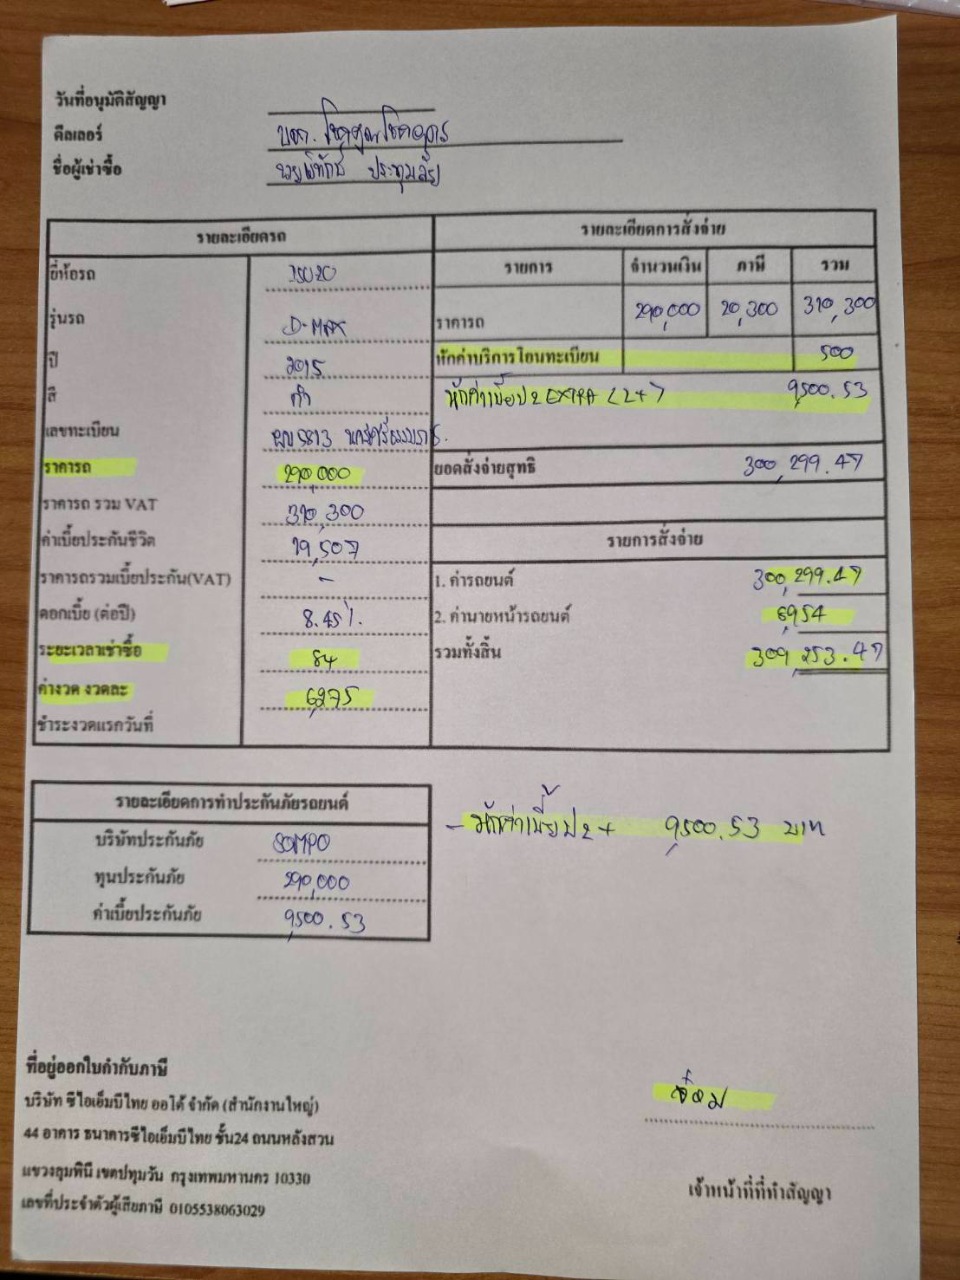 วันที่อนุมัติสัญญา
ดีลเลอร์ บจก. โชคคูณโชคอุดร
ชื่อผู้เช่าซื้อ ประทุมลัย
รายละเอียดรถ
ยี่ห้อรถ ISUZU
รุ่นรถ D-MAX
ปี 2015
สี ดำ
เลขทะเบียน
ราคารถ 290,000
ราคารถ รวม VAT 310,300
ค่าเบี้ยประกันชีวิต 19,507
ราคารถรวมเบี้ยประกัน(VAT) -
ดอกเบี้ย (ต่อปี) 8.45%
ระยะเวลาเช่าซื้อ 84
ค่างวด งวดละ 6,275
ชำระงวดแรกวันที่
รายละเอียดการสั่งจ่าย
รายการ จำนวนเงิน ภาษี รวม
ราคารถ 290,000 20,300 310,300
หักค่าบริการโอนทะเบียน 500
หักค่าเบี้ยป2 EXTRA (2+) 9,500.53
ยอดสั่งจ่ายสุทธิ 300,299.47
รายการสั่งจ่าย
1. ค่ารถยนต์ 300,299.47
2. ค่านายหน้ารถยนต์ 8,954
รวมทั้งสิ้น 309,253.47
รายละเอียดการทำประกันภัยรถยนต์
บริษัทประกันภัย SOMPO
ทุนประกันภัย 290,000
ค่าเบี้ยประกันภัย 9,500.53
- หักค่าเบี้ย ป2+ 9,500.53 บาท
ที่อยู่ออกใบกำกับภาษี
บริษัท ซีไอเอ็มบีไทย ออโต้ จำกัด (สำนักงานใหญ่)
44 อาคาร ธนาคารซีไอเอ็มบีไทย ชั้น24 ถนนหลังสวน
แขวงลุมพินี เขตปทุมวัน กรุงเทพมหานคร 10330
เลขที่ประจำตัวผู้เสียภาษี 0105538063029
เจ้าหน้าที่ที่ทำสัญญา